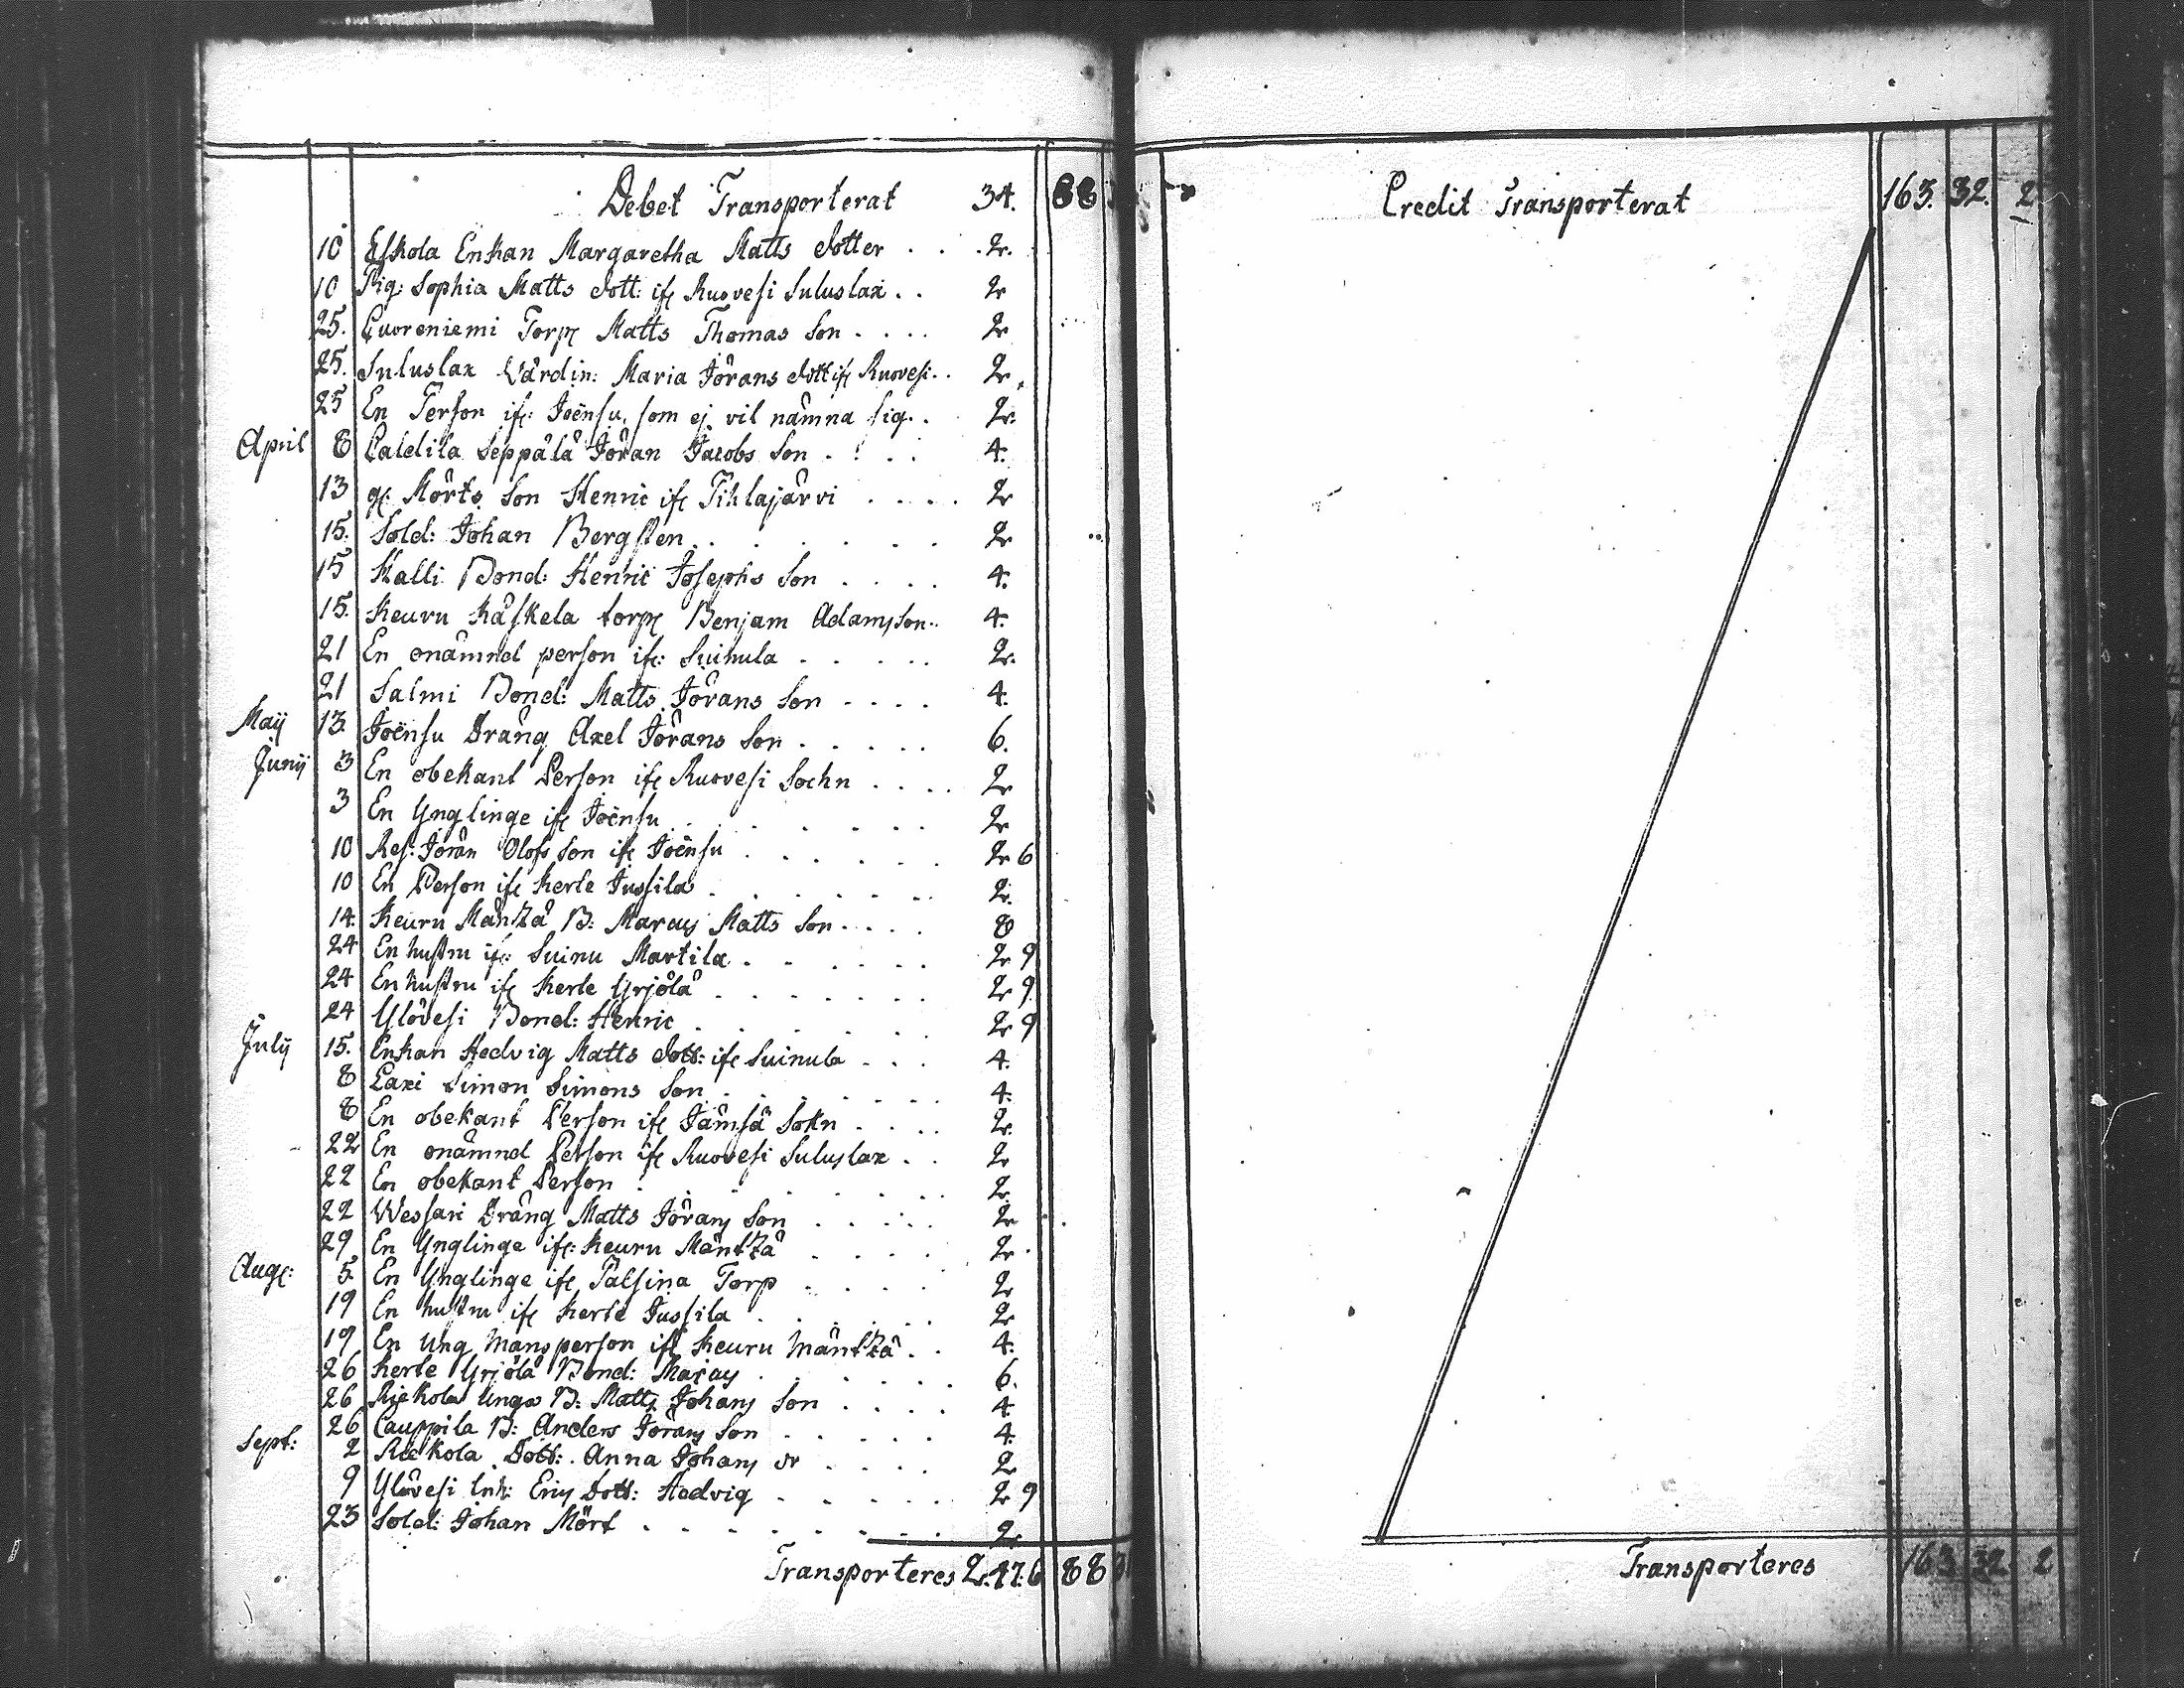 Debet Transporterat 34. 88
10 Eskola Enkan Margaretha Matts dotter . . . 2.
10 Pig: Sophia Matts dott: ifr Ruovesi Suluslax . . 2
25. Cuoreniemi Torp Matts Thomas Son . . . . 2
25. Suluslax Värdin: Maria Jörans dott ifr Ruovesi . . 2
25 En Person ifr: Joënsu, som ej vil nämna sig . . 2.
April 8 Caldila Seppälä Jöran Jacobs Son . . . . 4.
13 gl: Mörts Son Henric ifr Pihlajärvi . . . . 2
15. Sold: Johan Bergsten . . . . . . . 2
15 Kalli Bond: Henric Josephs Son . . . . 4.
15. Keuru Käskela torp Benjam Adamsson . . 4.
21 En onämnd person ifr: Suinula . . . . . 2.
21 Salmi Bond: Matts Jörans Son . . . . 4.
Maij 13. Joënsu Dräng Axel Jörans Son . . . . . 6.
Junij 3 En obekant Person ifr Ruovesi Sochn . . . . 2
3 En Ynglinge ifr Joënsu . . . . . . . 2
10 Jöran Olofs Son ifr Joënsu . . . . . . 2 6
10 En Person ifr Kerte Jussila . . . . . . . 2.
14. Keuru Mäntzä B: Marcus Matts Son . . . . 8
24 En hustru ifr: Suinu Martila . . . . . . 2 9
24 En hustru ifr Kerte Yrjölä . . . . . . . 2 9
24 Ylövesi Bond: Henric . . . . . . . 2 9
Julij 15. Enkan Hedvig Matts dott: ifr Suinula . . . 4.
8 Laxi Simon Simons Son . . . . . . . 4.
8 En obekant Person ifr Jämsä Sokn . . . . 2.
22 En onämnd Person ifr Ruovesi Suluslax . . 2
22 En obekant Person . . . . . . . . 2.
22 Wessari Dräng Matts Jörans Son . . . . . 2
29 En Ynglinge ifr: Keuru Mäntzä . . . . 2.
Aug: 5. En Ynglinge ifr Palsina Torp . . . . 2
19 En hustru ifr Kerte Jussila . . . . . 2
19 En ung mansperson ifr Keuru Mäntzä . . 4.
26 Kerte Yrjölä Bond: Marcus . . . . . . 6.
26 Riekola Unga B: Matts Johans Son . . . . 4
26 Cauppila B: Anders Jörans Son . . . . . 4.
Sept: 2 Riekola Dott: Anna Johans dr . . . . 2
9 Ylövesi Inh: Erics Dott: Hedvig . . . . . 2 9
23 Sold: Johan Mört . . . . . . . . 2
Transporteres 2.47.6 88
Credit Transporterat 163. 32. 2
Transporteres 163 32 2